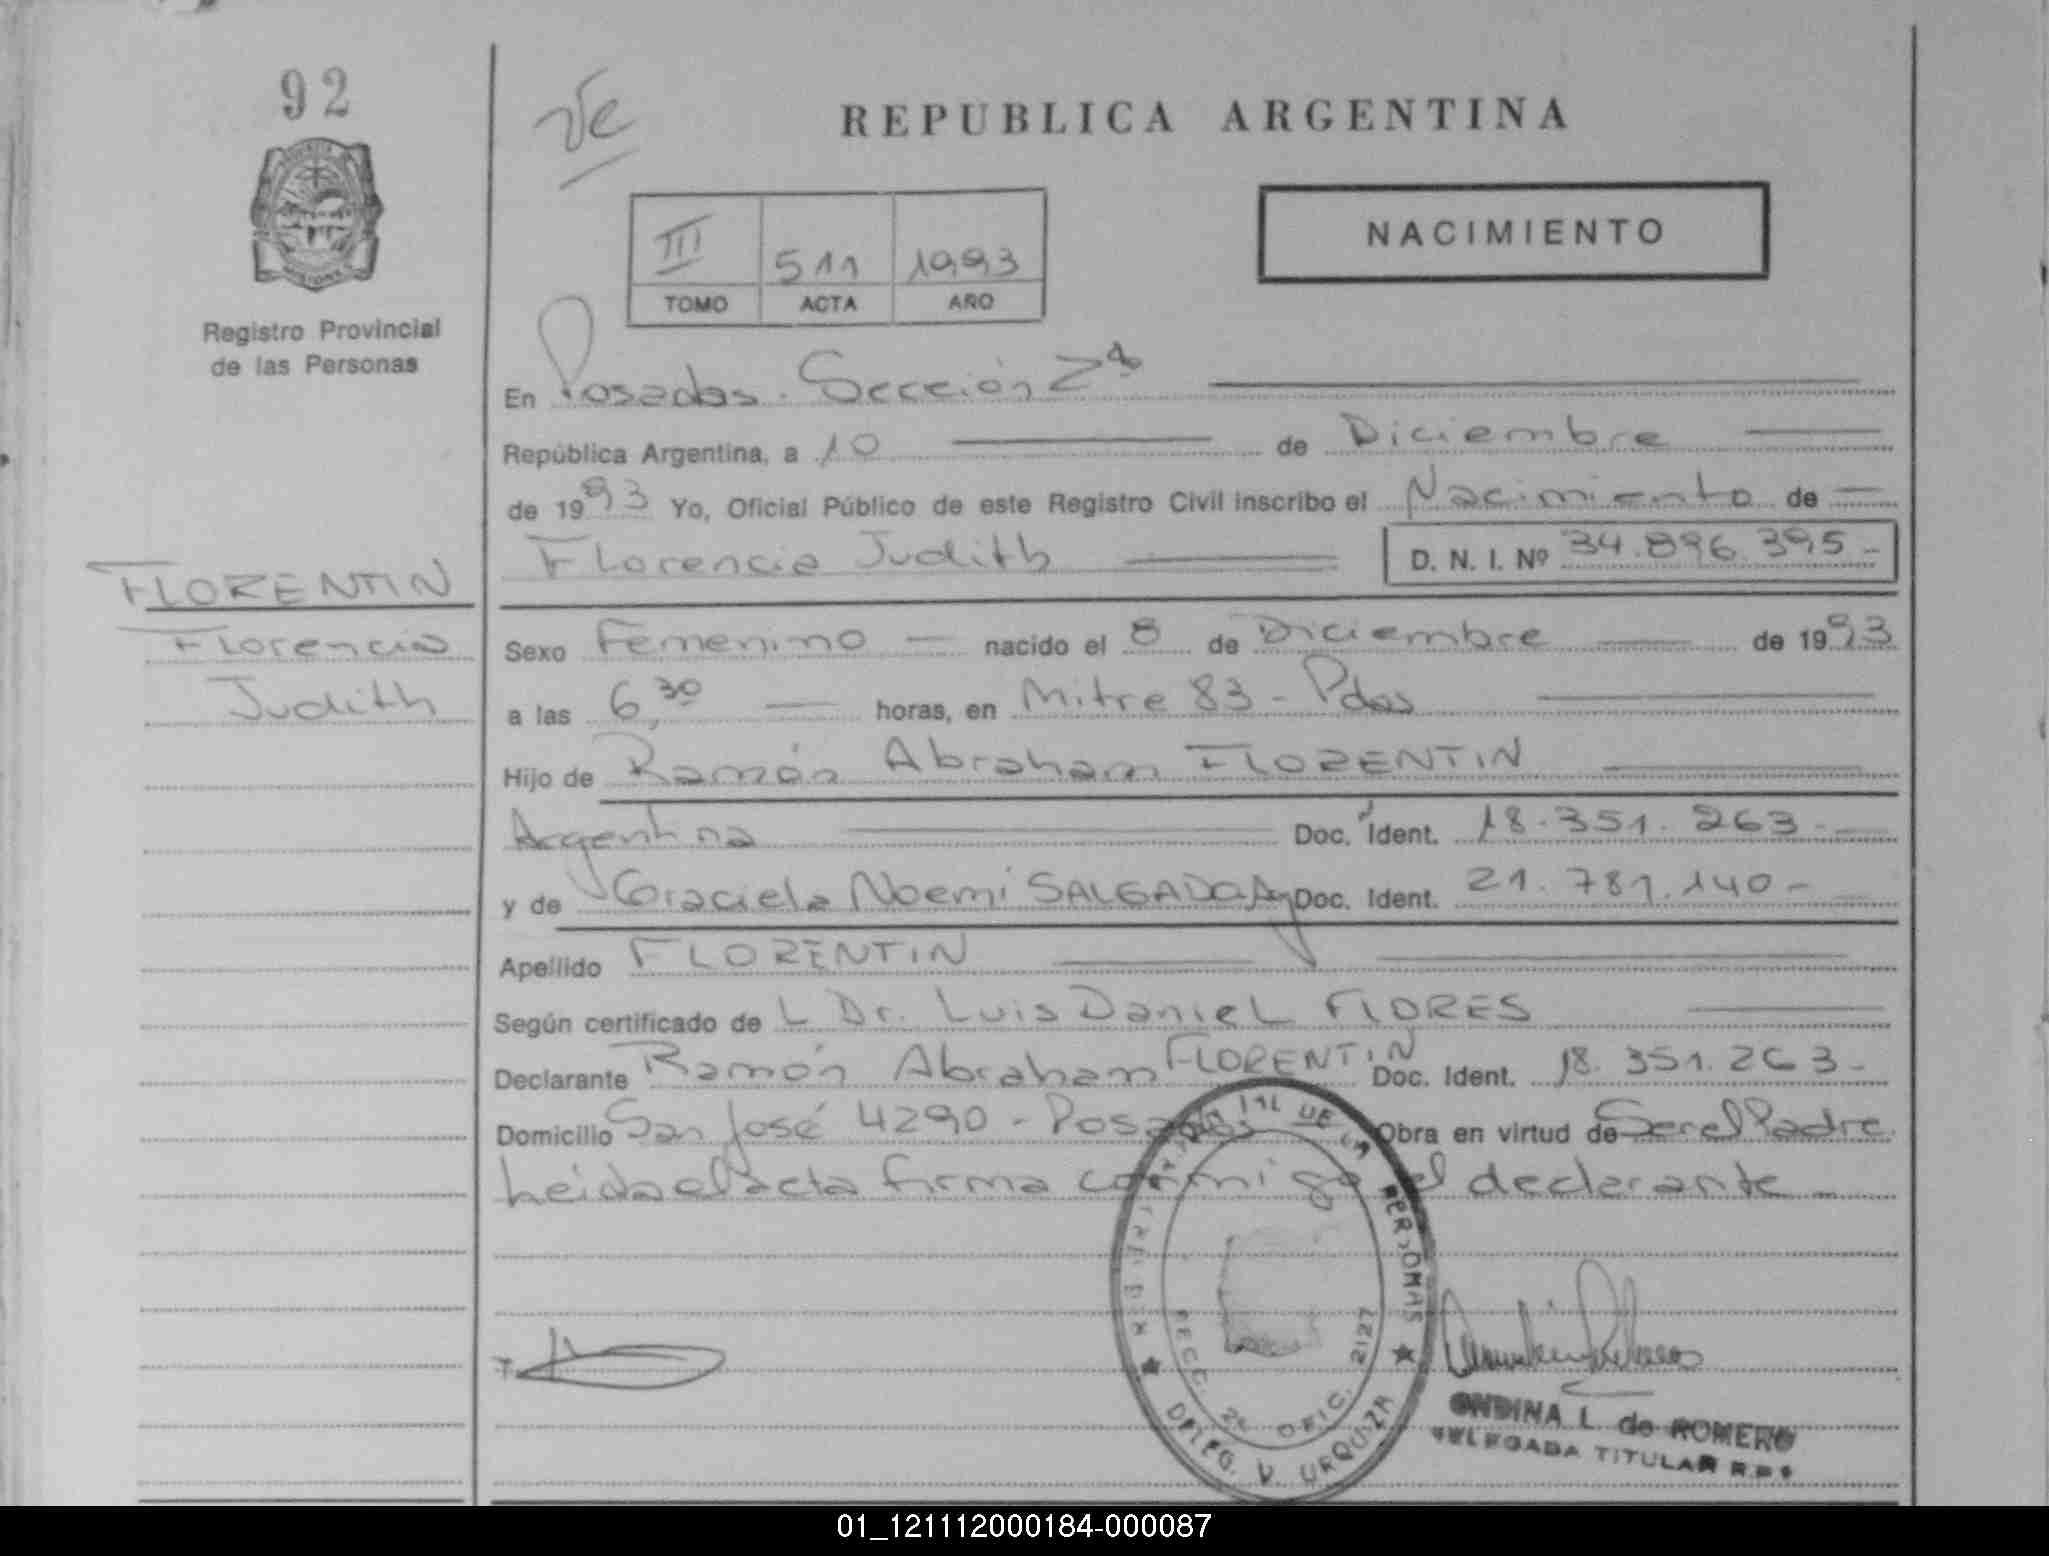 92
Ve
REPUBLICA ARGENTINA
NACIMIENTO
III 511 1993
TOMO ACTA AÑO
Registro Provincial
de las Personas
En Posadas. Sección 2ª
República Argentina, a 10 de Diciembre
de 1993 Yo, Oficial Público de este Registro Civil inscribo el Nacimiento de
Florencia Judith D. N. I. Nº 34.896.395-
FLORENTIN
Florencia
Judith
Sexo Femenino nacido el 8 de Diciembre de 1993
a las 6,30 horas, en Mitre 83 - Pdas
Hijo de Ramón Abraham FLORENTIN
Argentina Doc. Ident. 18.351.263-
y de Graciela Noemí SALGADO Arg Doc. Ident. 21.781.140-
Apellido FLORENTIN
Según certificado de L Dr. Luis Daniel FLORES
Declarante Ramón Abraham FLORENTIN Doc. Ident. 18.351.263-
Domicilio San José 4290 - Posadas Obra en virtud de Ser el Padre
Leida el acta firma conmigo el declarante
DE LAS PERSONAS
SECC. 2ª OFIC. 2127
DELEG. V. URQUIZA
ONDINA L. de ROMERO
DELEGADA TITULAR R.P.
01_121112000184-000087